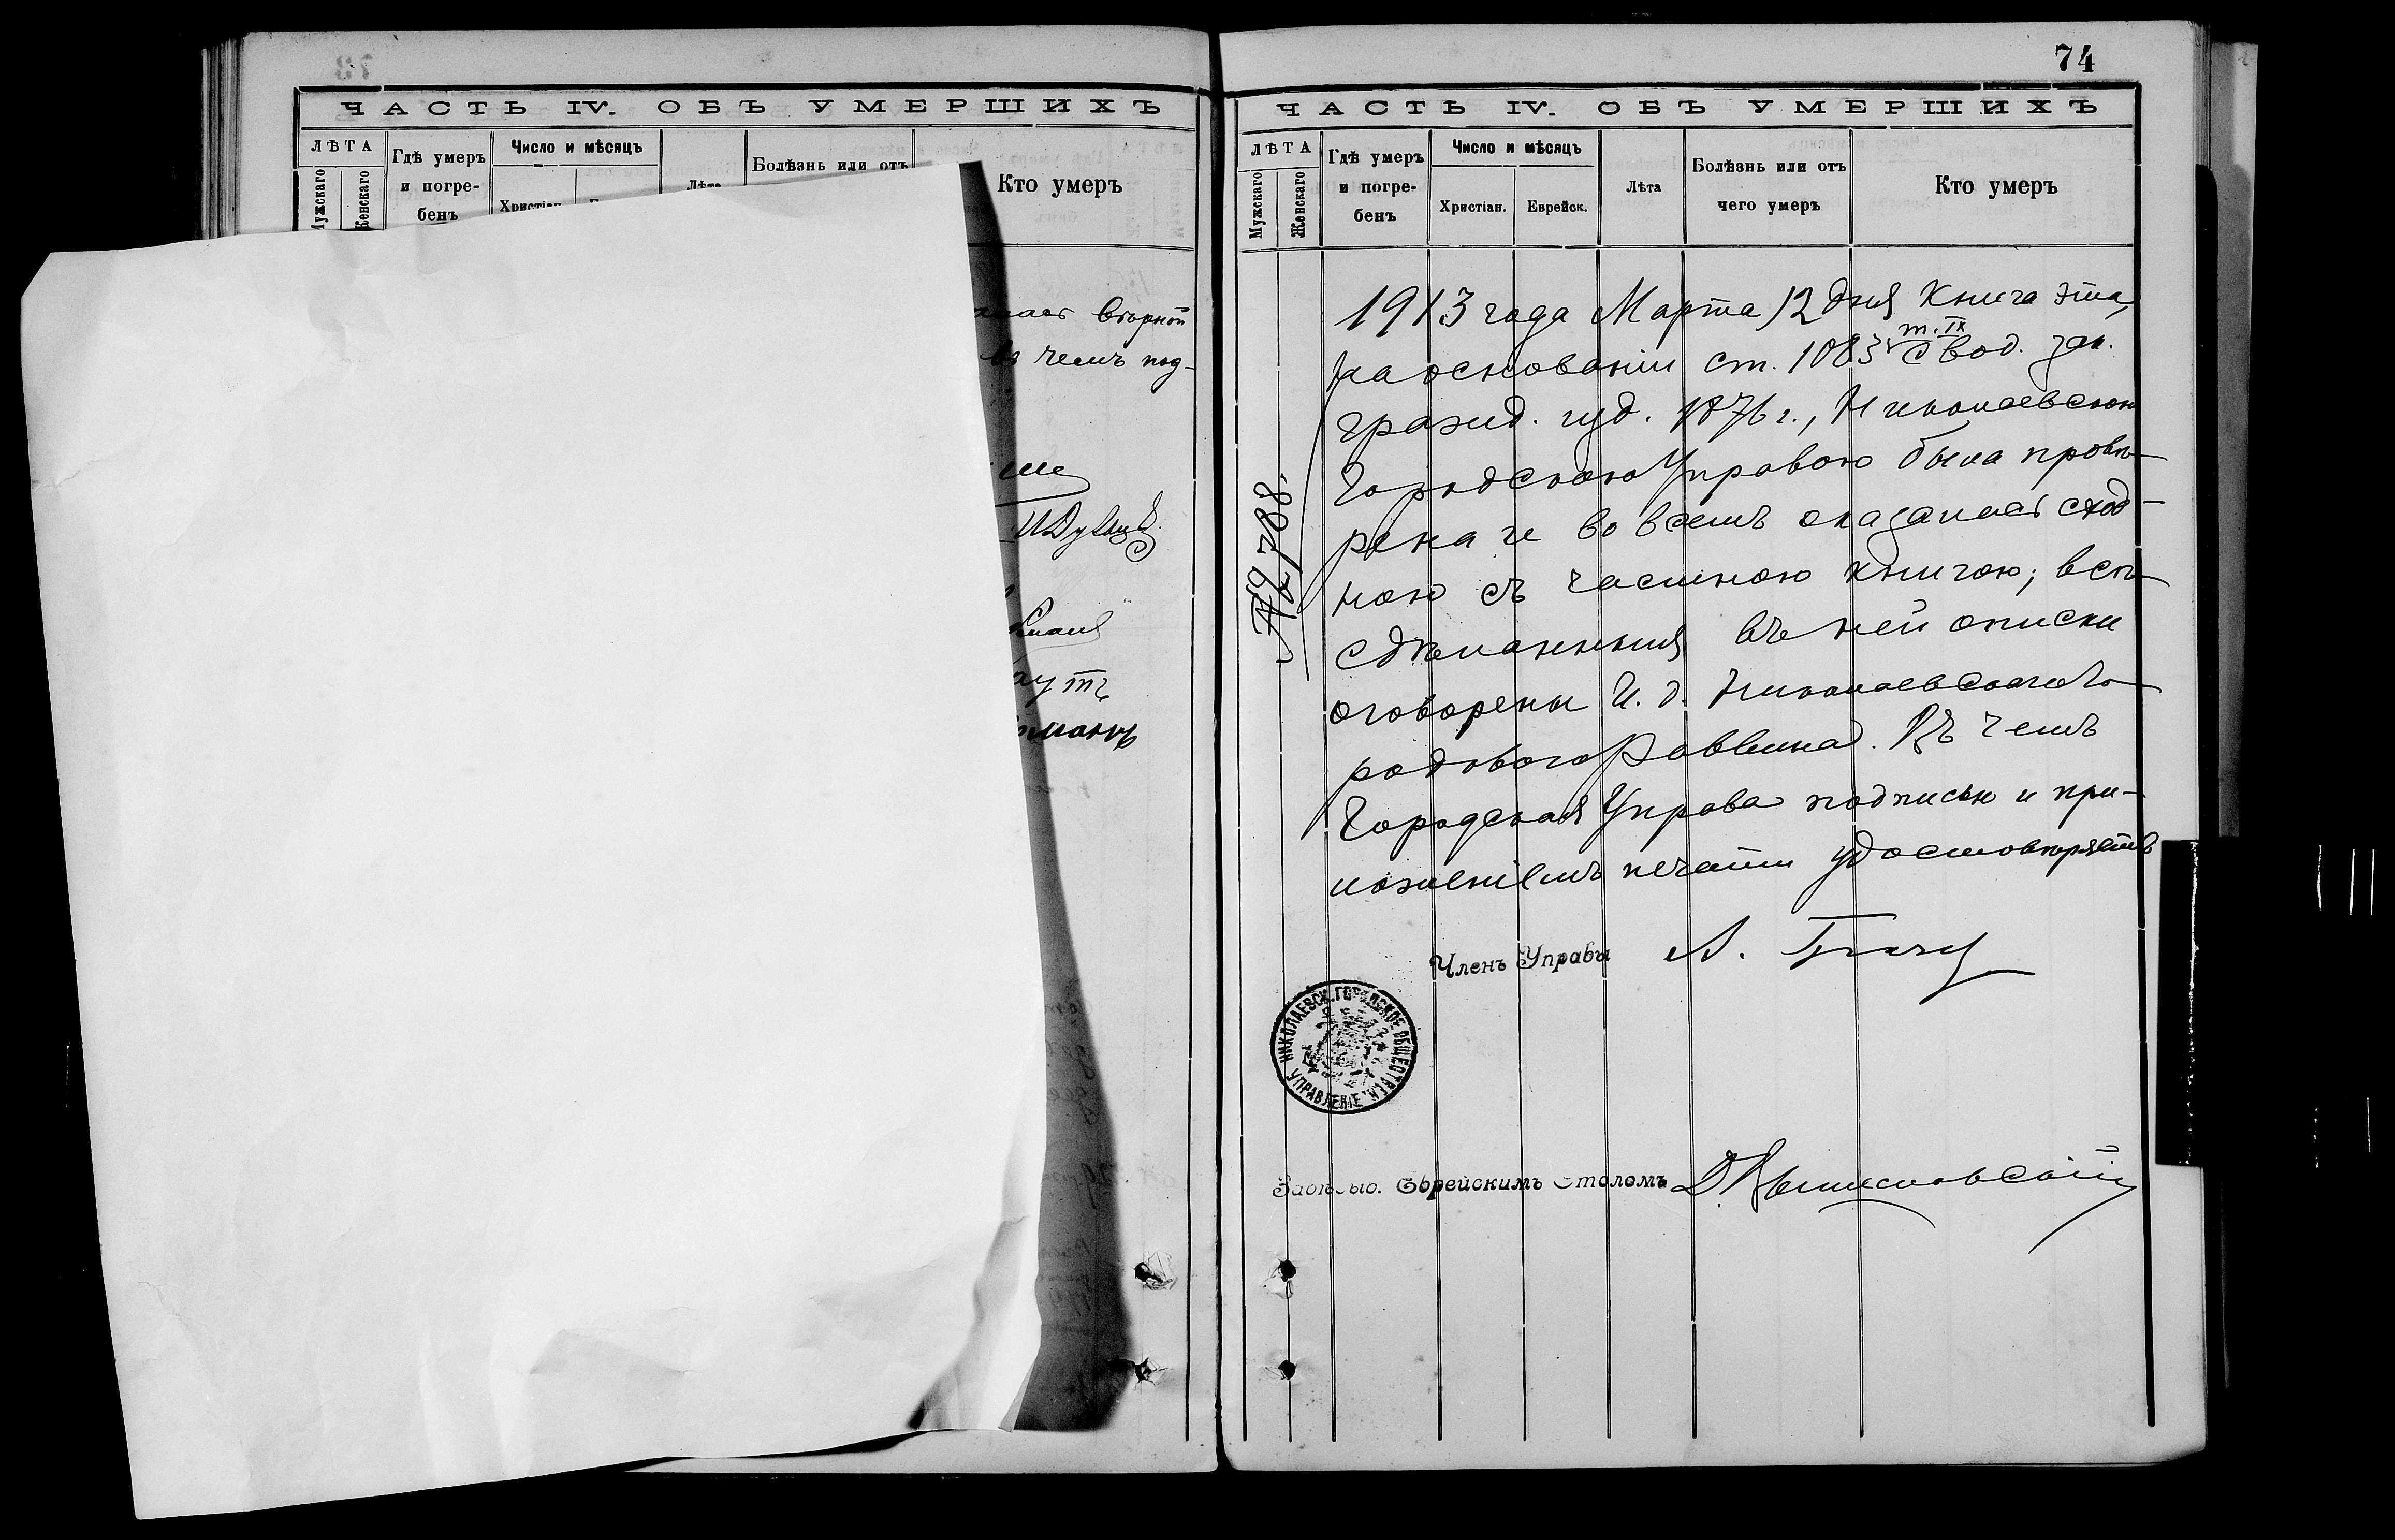 ЧАСТЬ IV. ОБЪ УМЕРШИХЪ
ЛѢТА
Мужскаго
Женскаго
Гдѣ умеръ
и погре-
бенъ
Число и мѣсяцъ
Христіан.
Лѣта
Болѣзнь или отъ
Кто умеръ
вѣрной
въ чемъ под-
74
ЧАСТЬ IV. ОБЪ УМЕРШИХЪ
ЛѢТА
Мужскаго
Женскаго
Гдѣ умеръ
и погре-
бенъ
Число и мѣсяцъ
Христіан.
Еврейск.
Лѣта
Болѣзнь или отъ
чего умеръ
Кто умеръ
№ 9788.
1913 года Марта 12 дня Книга эта,
на основаніи ст. 1083 т. IX Свод. зак.
гражд. изд. 1876 г., Николаевскою
Городскою Управою была провѣ-
рена и во всемъ оказалась сход-
ною съ частною книгою; всѣ
сдѣланныя въ ней описки
оговорены И. д. Николаевскаго Го-
родового Раввина. Въ чемъ
Городская Управа подписью и при-
ложеніемъ печати удостовѣряетъ
Членъ Управы
НИКОЛАЕВСК. ГОРОДСКОЕ ОБЩЕСТВЕН. УПРАВЛЕНІЕ
Завѣдыв. Еврейскимъ Столомъ